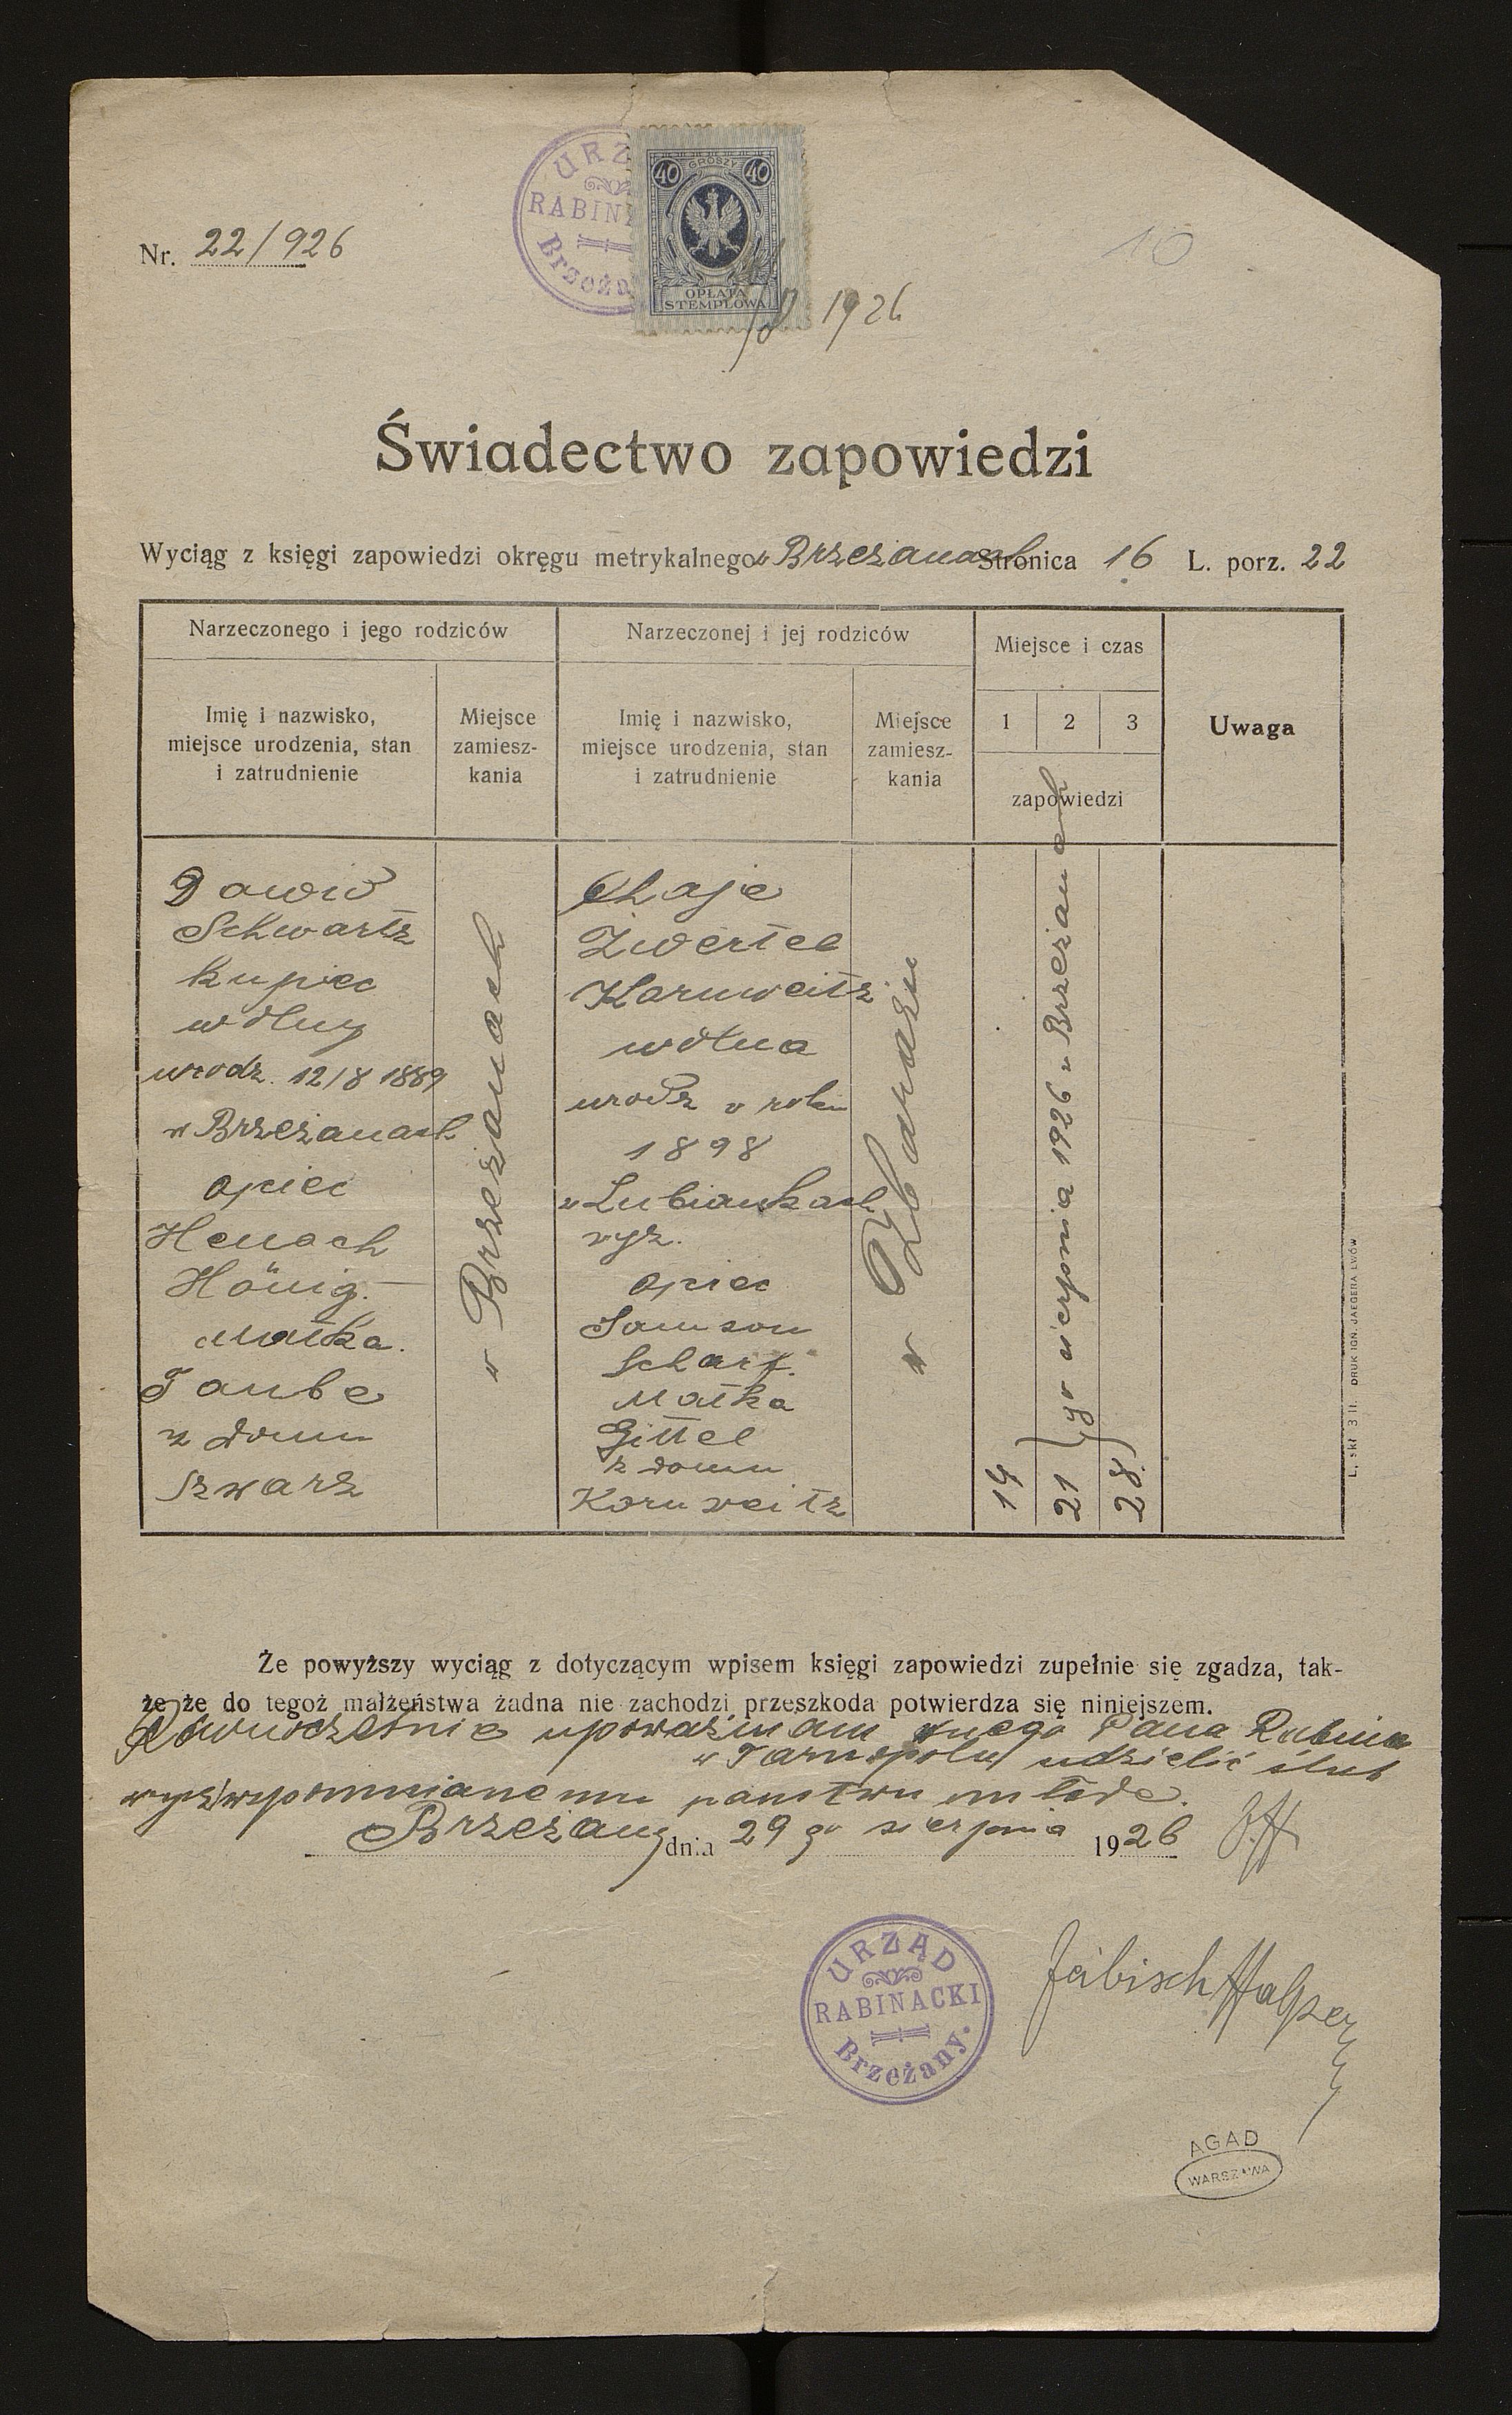 URZ
RABIN
Brzeża
40 GROSZY 40
OPŁATA
STEMPLOWA
Nr. 22/926
10
1926
Świadectwo zapowiedzi
Wyciąg z księgi zapowiedzi okręgu metrykalnego w Brzeżanach Stronica 16 L. porz. 22
Narzeczonego i jego rodziców
Narzeczonej i jej rodziców
Miejsce i czas
Uwaga
Imię i nazwisko,
miejsce urodzenia, stan
i zatrudnienie
Miejsce
zamiesz-
kania
Imię i nazwisko,
miejsce urodzenia, stan
i zatrudnienie
Miejsce
zamiesz-
kania
1 2 3
zapowiedzi
Dawid
Schwartz
kupiec
wolny
urodz. 12/8 1889
w Brzeżanach
ojciec
Henoch
Hönig.
matka.
Taube
z domu
Szwarz
w Brzeżanach
Chaje
Zwertel
Kornweitz
wolna
urodz w roku
1898
w Lubiankach
wyż.
ojciec
Samson
Scharf.
Matka
Gittel
z domu
Kornweitz
w Zbarażu
14
21
28.
go sierpnia 1926 w Brzeżanach
L. skł 3 II. DRUK IGN. JAEGERA LWÓW
Że powyższy wyciąg z dotyczącym wpisem księgi zapowiedzi zupełnie się zgadza, tak-
że że do tegoż małżeństwa żadna nie zachodzi przeszkoda potwierdza się niniejszem.
Równocześnie upoważniam Pana Rabina
w Tarnopolu udzielić ślub
wyż wspomnianemu państwu młode.
Brzeżany dnia 29 go sierpnia 1926
URZĄD
RABINACKI
Brzeżany.
Feibisch Halpern
AGAD
WARSZAWA